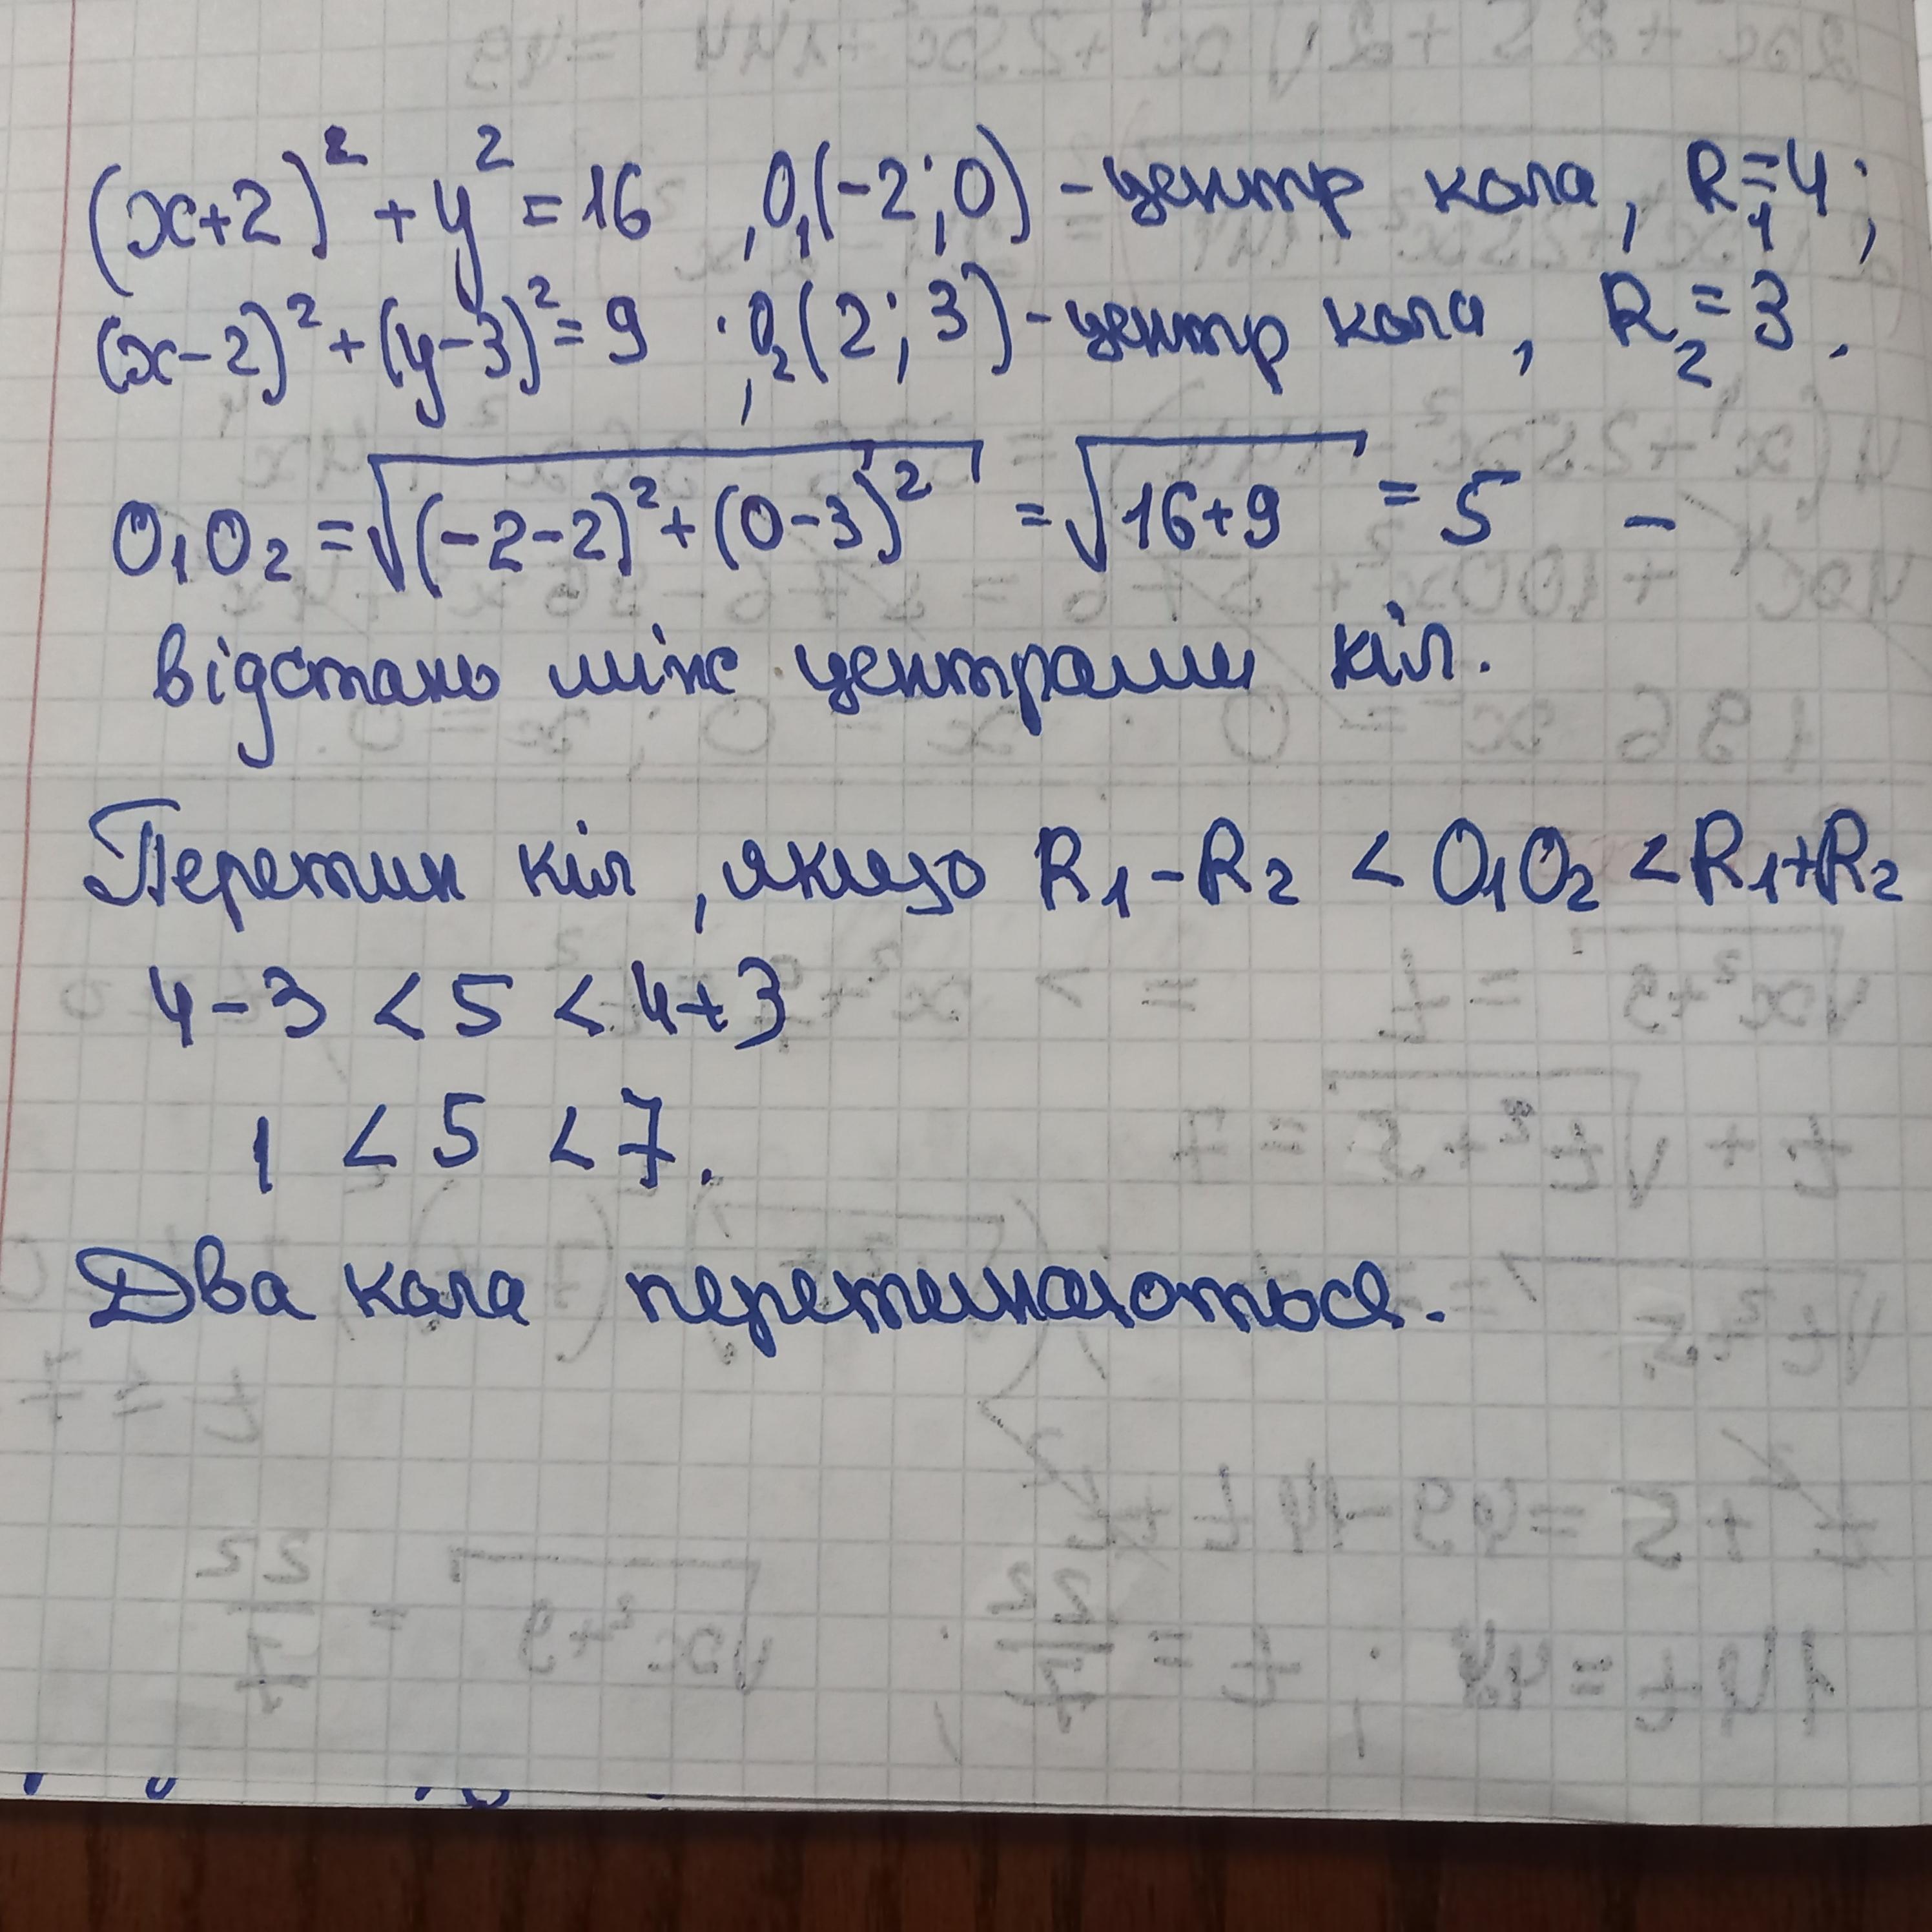 (x+2)² + y² = 16 , O₁(-2; 0) - центр кола, R₁=4;
(x-2)² + (y-3)² = 9 ; O₂(2; 3) - центр кола, R₂=3.
O₁O₂ = √((-2-2)² + (0-3)²) = √(16+9) = 5 -
відстань між центрами кіл.
Перетин кіл, якщо R₁-R₂ < O₁O₂ < R₁+R₂
4-3 < 5 < 4+3
1 < 5 < 7.
Два кола перетинаються.